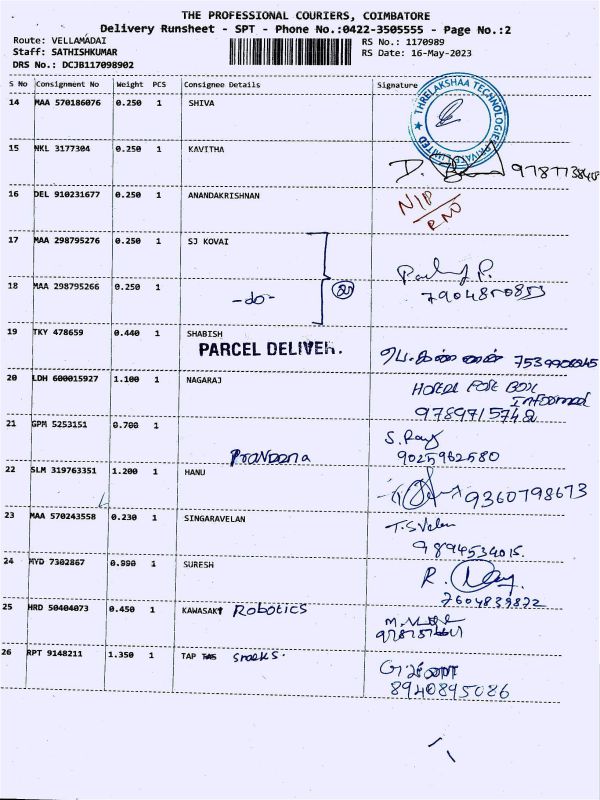 THE PROFESSIONAL COURIERS, COIMBATORE
Delivery Runsheet - SPT - Phone No.:0422-3505555 - Page No.:2
Route: VELLAMADAI
RS No.: 1170989
Staff: SATHISHKUMAR
RS Date: 16-May-2023
DRS No.: DCJB117098902
S No Consignment No Weight PCS Consignee Details Signature
14 MAA 570186076 0.250 1 SHIVA
THRELAKSHAA TECHNOLOGIES PRIVATE LIMITED
15 NKL 3177304 0.250 1 KAVITHA
16 DEL 910231677 0.250 1 ANANDAKRISHNAN
N/P
RNO
17 MAA 298795276 0.250 1 SJ KOVAI
18 MAA 298795266 0.250 1 -do-
7904810853
19 TKY 478659 0.440 1 SHABISH
PARCEL DELIVER.
20 LDH 600015927 1.100 1 NAGARAJ
Informed
9789715742
21 GPM 5253151 0.700 1
Praveena
S. Ray
9025962580
22 SLM 319763351 1.200 1 HANU
9360798673
23 MAA 570243558 0.230 1 SINGARAVELAN
T.S Velan
9894534015.
24 MYD 7302867 0.990 1 SURESH
7604839822
25 HRD 50404073 0.450 1 KAWASAKI Robotics
26 RPT 9148211 1.350 1 TAP TAS snacks.
8940895086